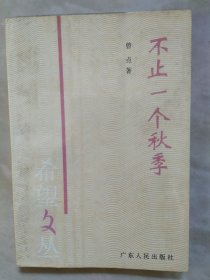 不止一个秋季
曾贞著
希望文丛
广东人民出版社